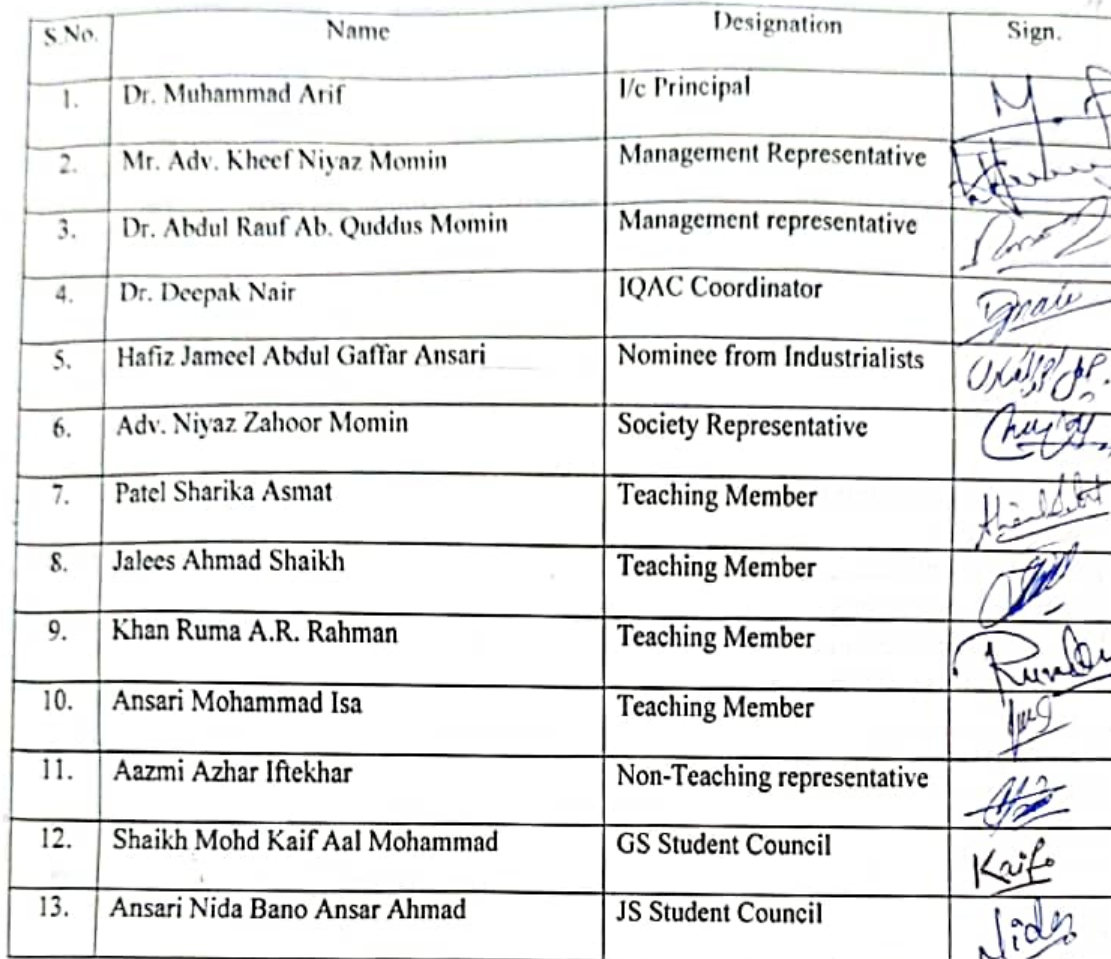 S.No. Name Designation Sign.
1. Dr. Muhammad Arif I/c Principal
2. Mr. Adv. Kheef Niyaz Momin Management Representative
3. Dr. Abdul Rauf Ab. Quddus Momin Management representative
4. Dr. Deepak Nair IQAC Coordinator
5. Hafiz Jameel Abdul Gaffar Ansari Nominee from Industrialists
6. Adv. Niyaz Zahoor Momin Society Representative
7. Patel Sharika Asmat Teaching Member
8. Jalees Ahmad Shaikh Teaching Member
9. Khan Ruma A.R. Rahman Teaching Member
10. Ansari Mohammad Isa Teaching Member
11. Aazmi Azhar Iftekhar Non-Teaching representative
12. Shaikh Mohd Kaif Aal Mohammad GS Student Council Kaif
13. Ansari Nida Bano Ansar Ahmad JS Student Council Nida